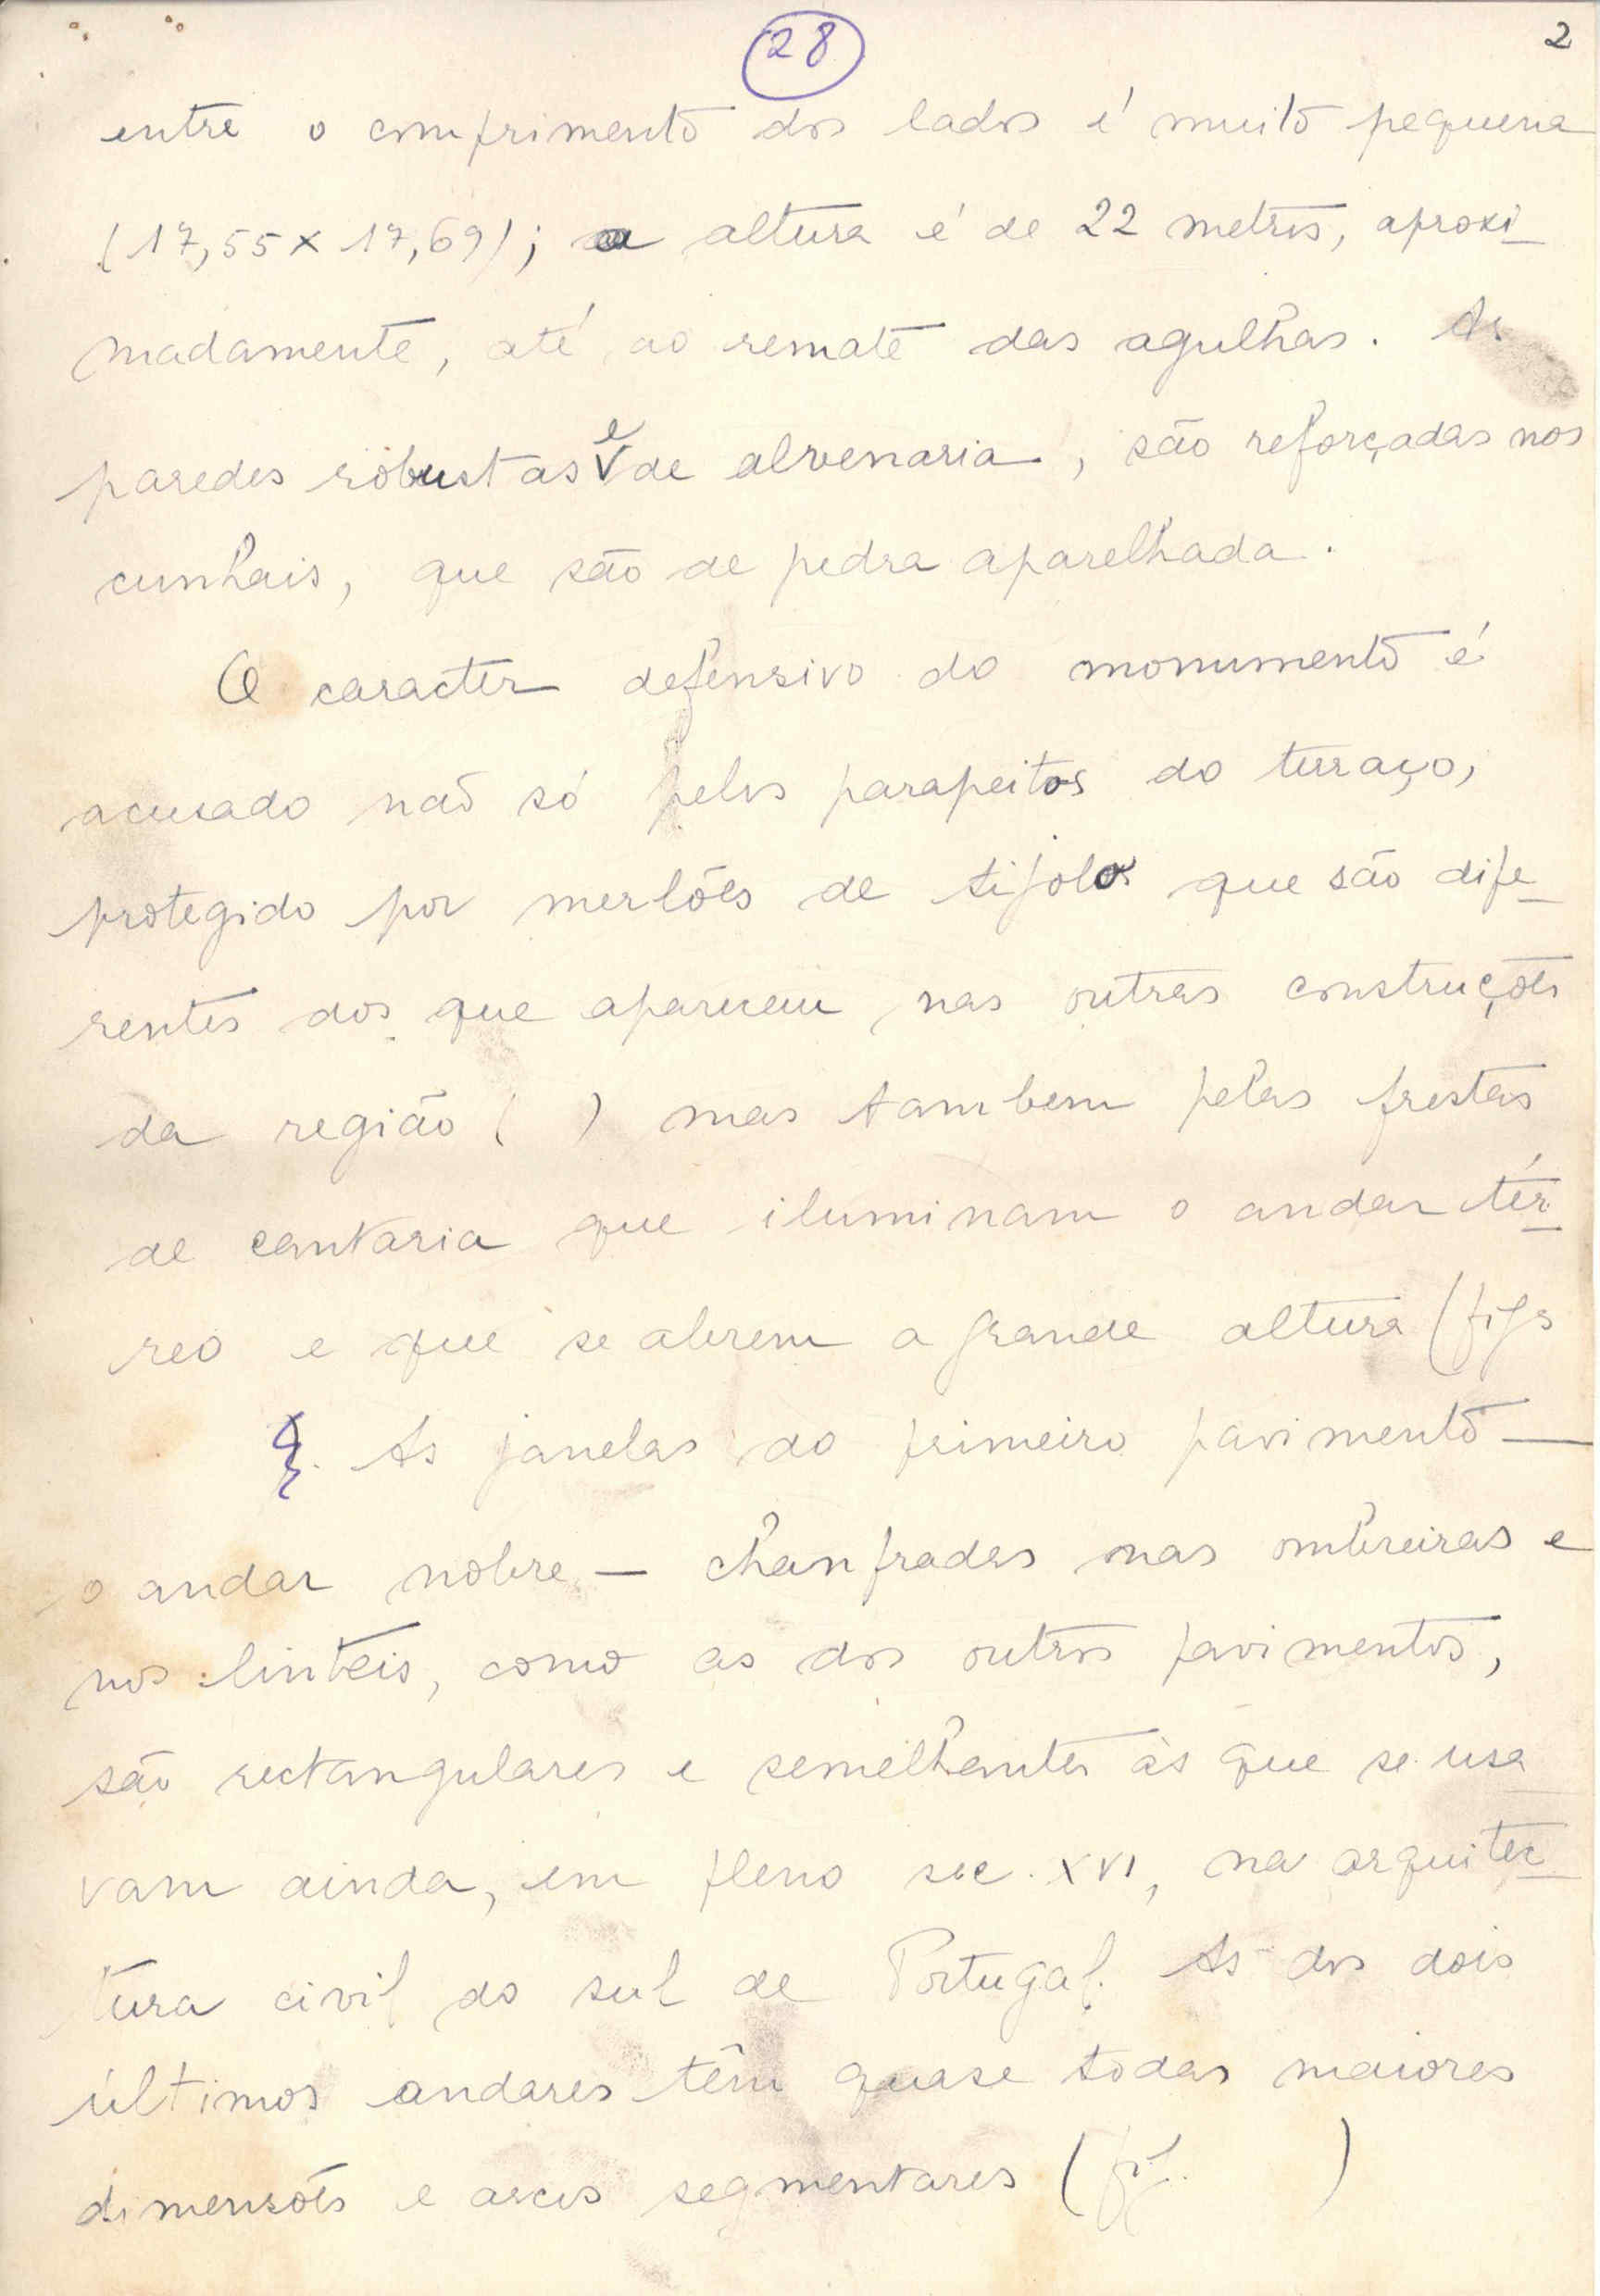 28
2
entre o comprimento dos lados é muito pequena
(17,55 x 17,69); a altura é de 22 metros, aproxi-
madamente, até ao remate das agulhas. As
paredes robustas e de alvenaria, são reforçadas nos
cunhais, que são de pedra aparelhada.
O caracter defensivo do monumento é
acusado não só pelos parapeitos do terraço,
protegido por merlões de tijolo que são dife-
rentes dos que aparecem nas outras construções
da região ( ) mas tambem pelas frestas
de cantaria que iluminam o andar tér-
reo e que se abrem a grande altura (figs
. As janelas do primeiro pavimento —
o andar nobre — chanfradas nas ombreiras e
nos linteis, como as dos outros pavimentos,
são rectangulares e semelhantes às que se usa
vam ainda, em pleno sec. XVI, na arquitec-
tura civil do sul de Portugal. As dos dois
últimos andares têm quase todas maiores
dimensões e arcos segmentares (fig. )